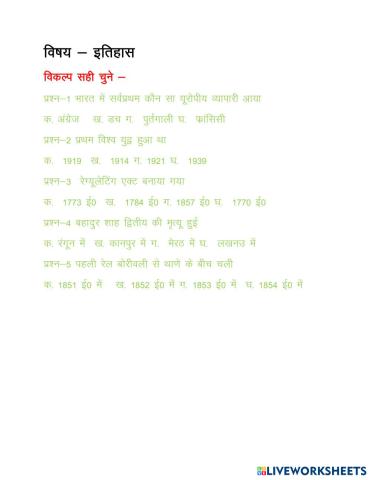 विषय – इतिहास
विकल्प सही चुने –
प्रश्न–1 भारत में सर्वप्रथम कौन सा यूरोपीय व्यापारी आया
क. अंग्रेज ख. डच ग. पुर्तगाली घ. फ्रांसिसी
प्रश्न–2 प्रथम विश्व युद्व हुआ था
क. 1919 ख. 1914 ग. 1921 घ. 1939
प्रश्न–3 रेग्यूलेटिंग एक्ट बनाया गया
क. 1773 ई0 ख. 1784 ई0 ग. 1857 ई0 घ. 1770 ई0
प्रश्न–4 बहादुर शाह द्वितीय की मृत्यू हुई
क. रंगून में ख. कानपुर में ग. मेरठ में घ. लखनउ में
प्रश्न–5 पहली रेल बोरीवली से थाणे के बीच चली
क. 1851 ई0 में ख. 1852 ई0 में ग. 1853 ई0 में घ. 1854 ई0 में
LIVEWORKSHEETS